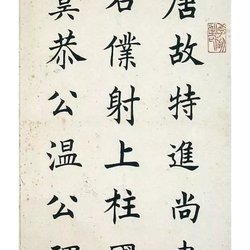 唐故特進尚
右僕射上柱國
虞恭公温公